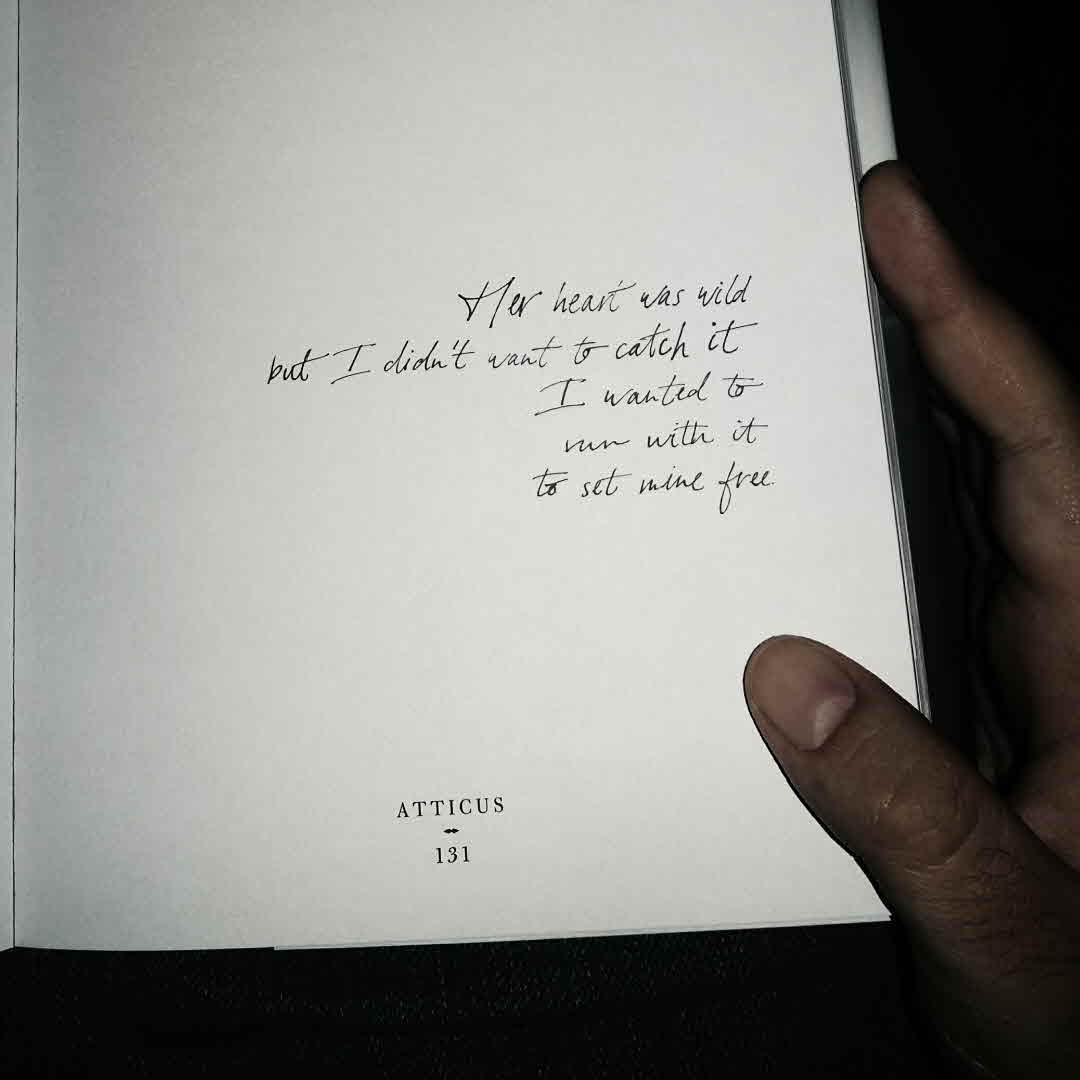 Her heart was wild
but I didn't want to catch it
I wanted to
run with it
to set mine free.
ATTICUS
131